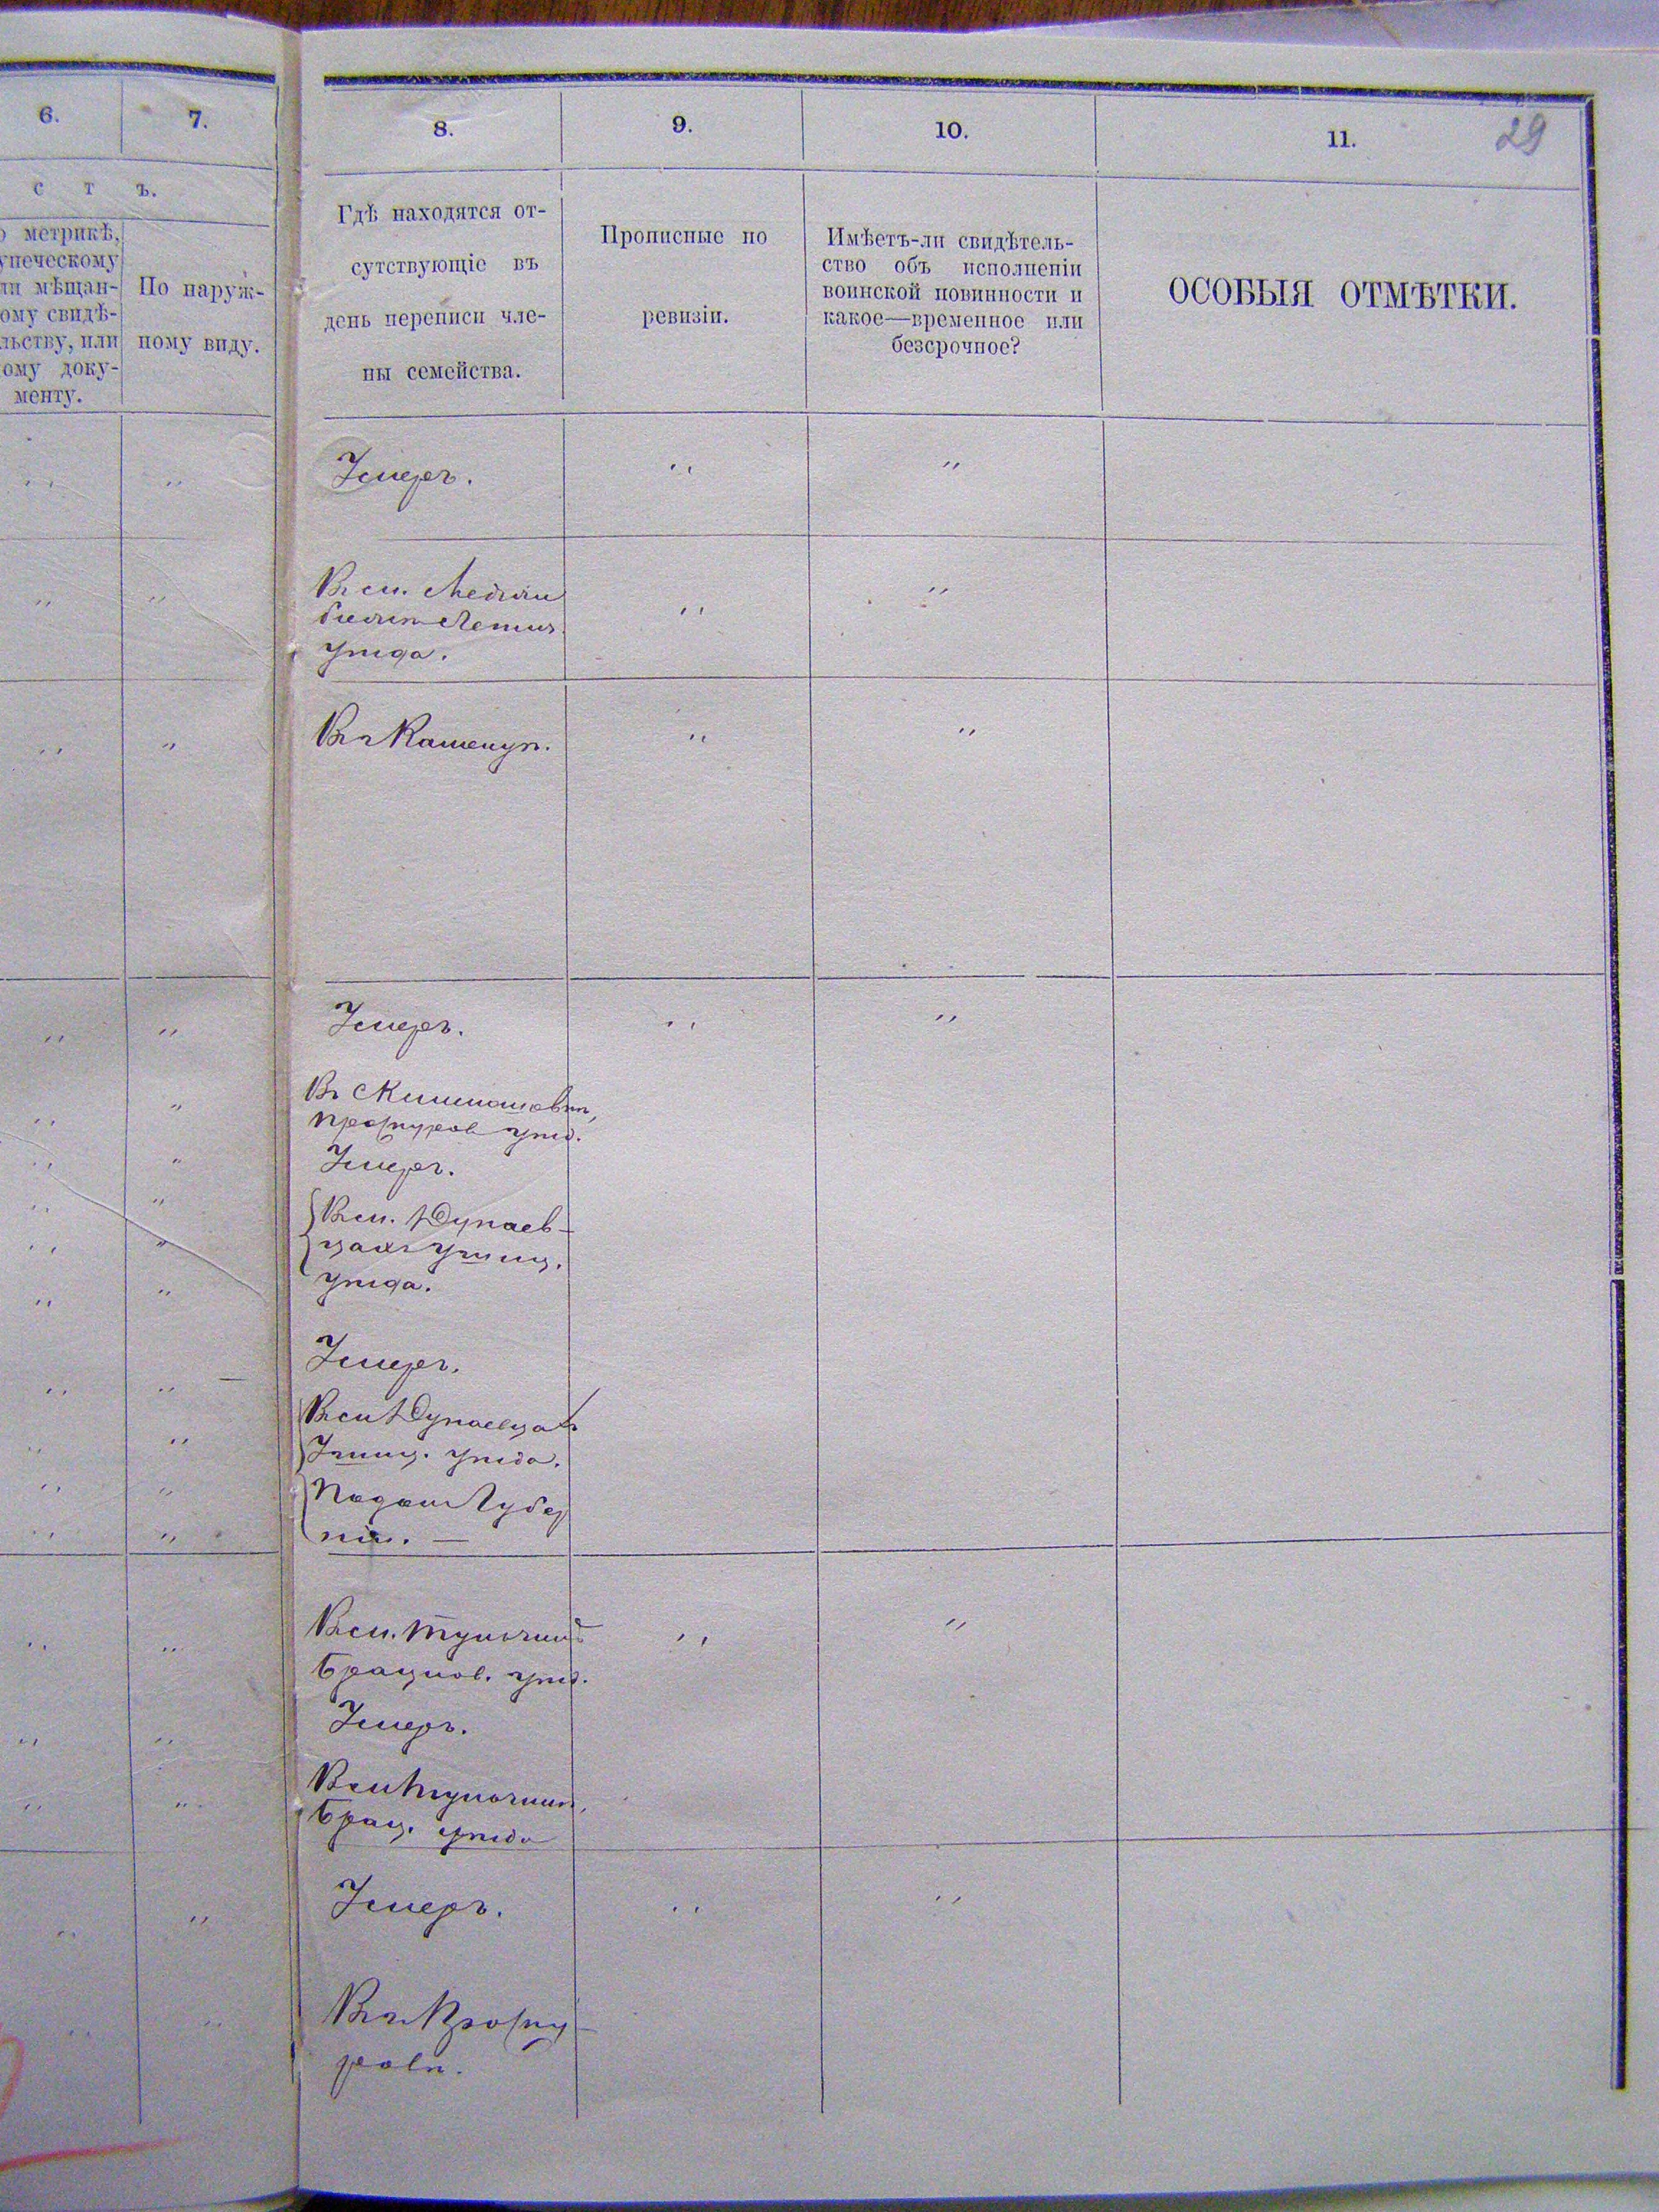 29
6.
7.
8.
9.
10.
11.
с т ъ.
метрикѣ,
упеческому
ли мѣщан-
ому свидѣ-
льству, или
ому доку-
менту.
По наруж-
ному виду.
Гдѣ находятся от-
сутствующіе въ
день переписи чле-
ны семейства.
Прописные по
ревизіи.
Имѣетъ-ли свидѣтель-
ство объ исполненіи
воинской повинности и
какое—временное или
безсрочное?
ОСОБЫЯ ОТМѢТКИ.
Умеръ.
Въ м. Меджи
божѣ Летич.
уѣзда.
Въ г Каменцѣ.
Умеръ.
Въ
Проскуров уѣзд.
Умеръ.
Въ м. Дунаев-
цахъ Ушиц.
уѣзда.
Умеръ.
Въ м Дунаевцахъ
Ушиц. уѣзда.
Подол Губер
ніи. —
Въ м.
Брацлов. уѣзд.
Умеръ.
Въ м
Брац. уѣзда
Умеръ.
Въ г Проску-
ровѣ.